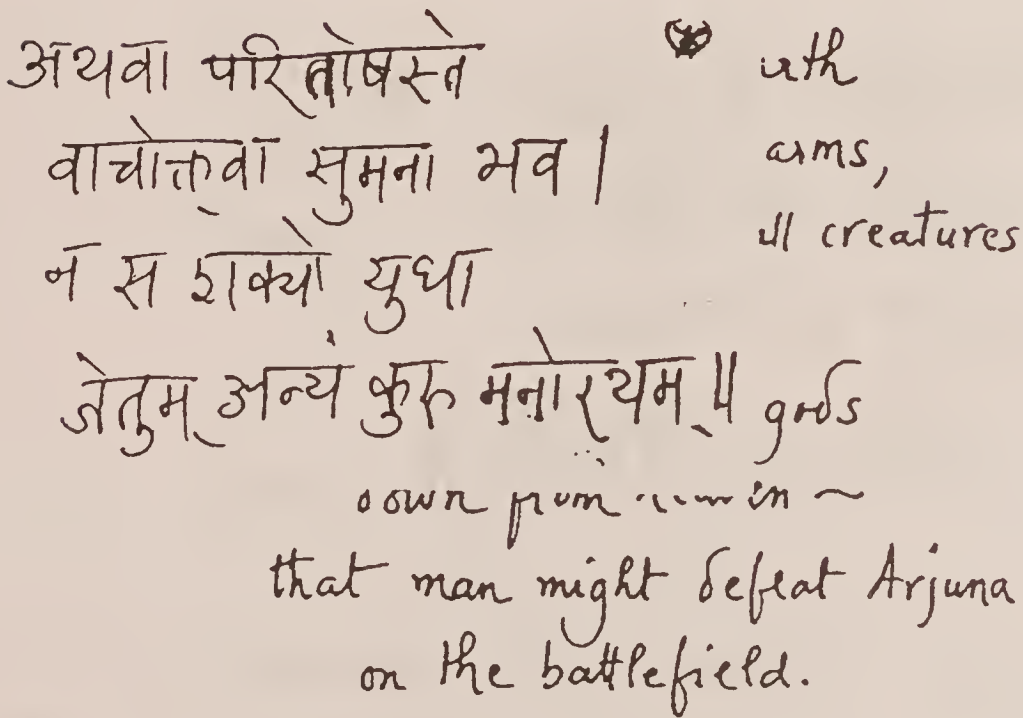 अथवा परितोषस्ते
वाचोक्त्वा सुमना भव।
न स शक्यो युधा
जेतुम् अन्यं कुरु मनोरथम्॥
arms,
creatures
gods
down from
that man might defeat Arjuna
on the battlefield.